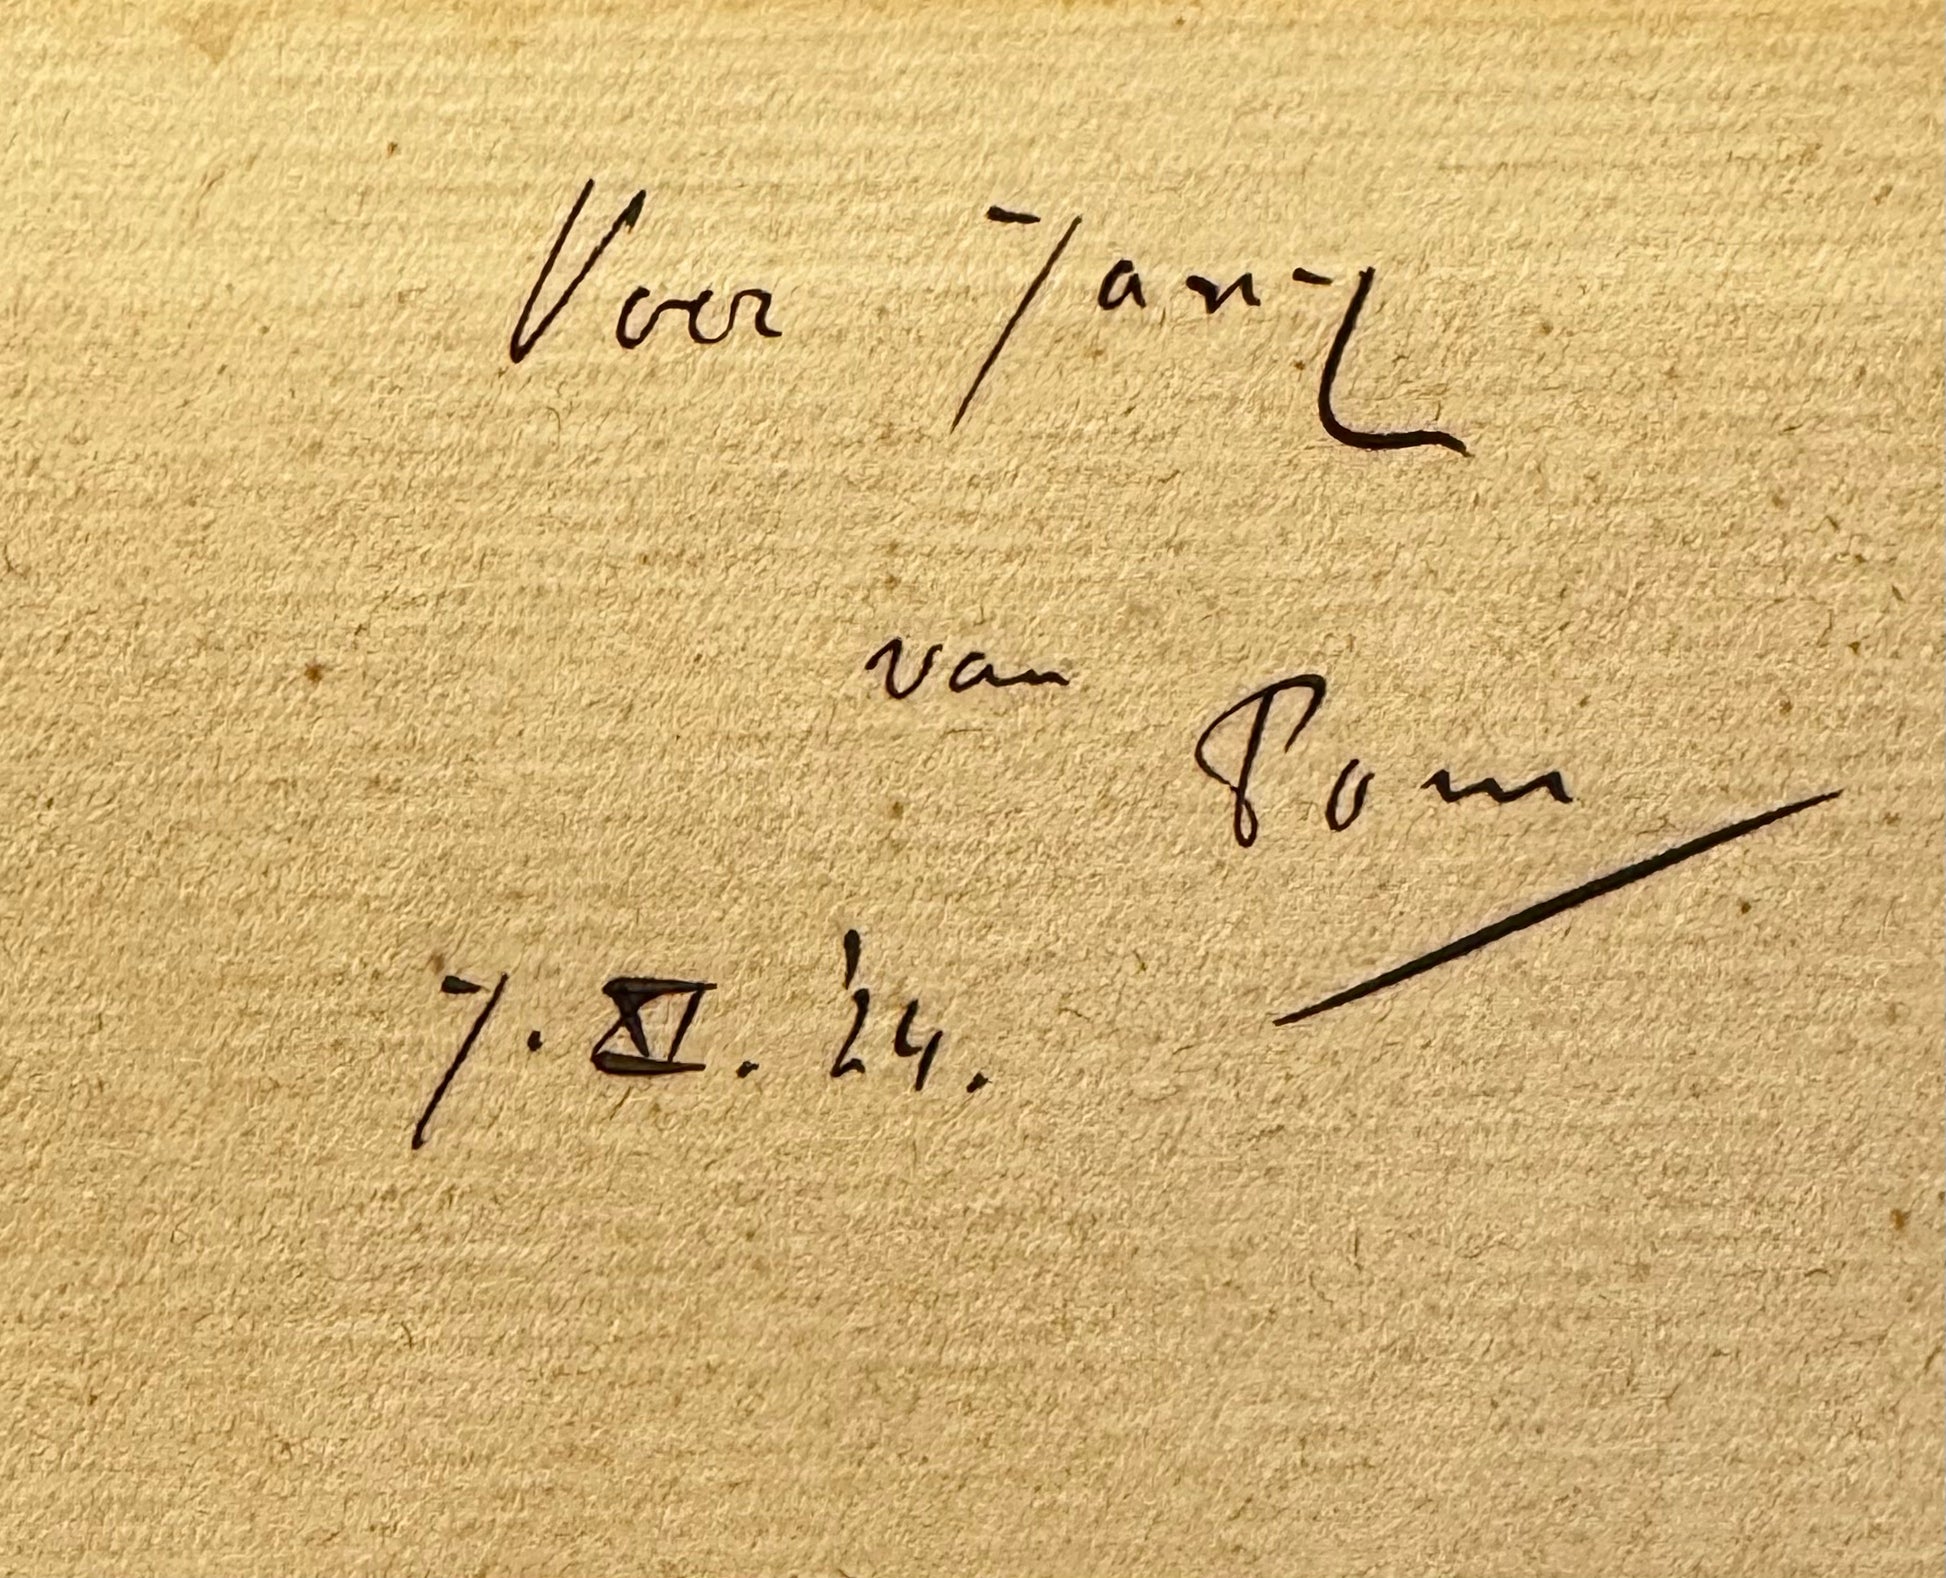 Voor Jany
van
Pom
7. XI. '24.